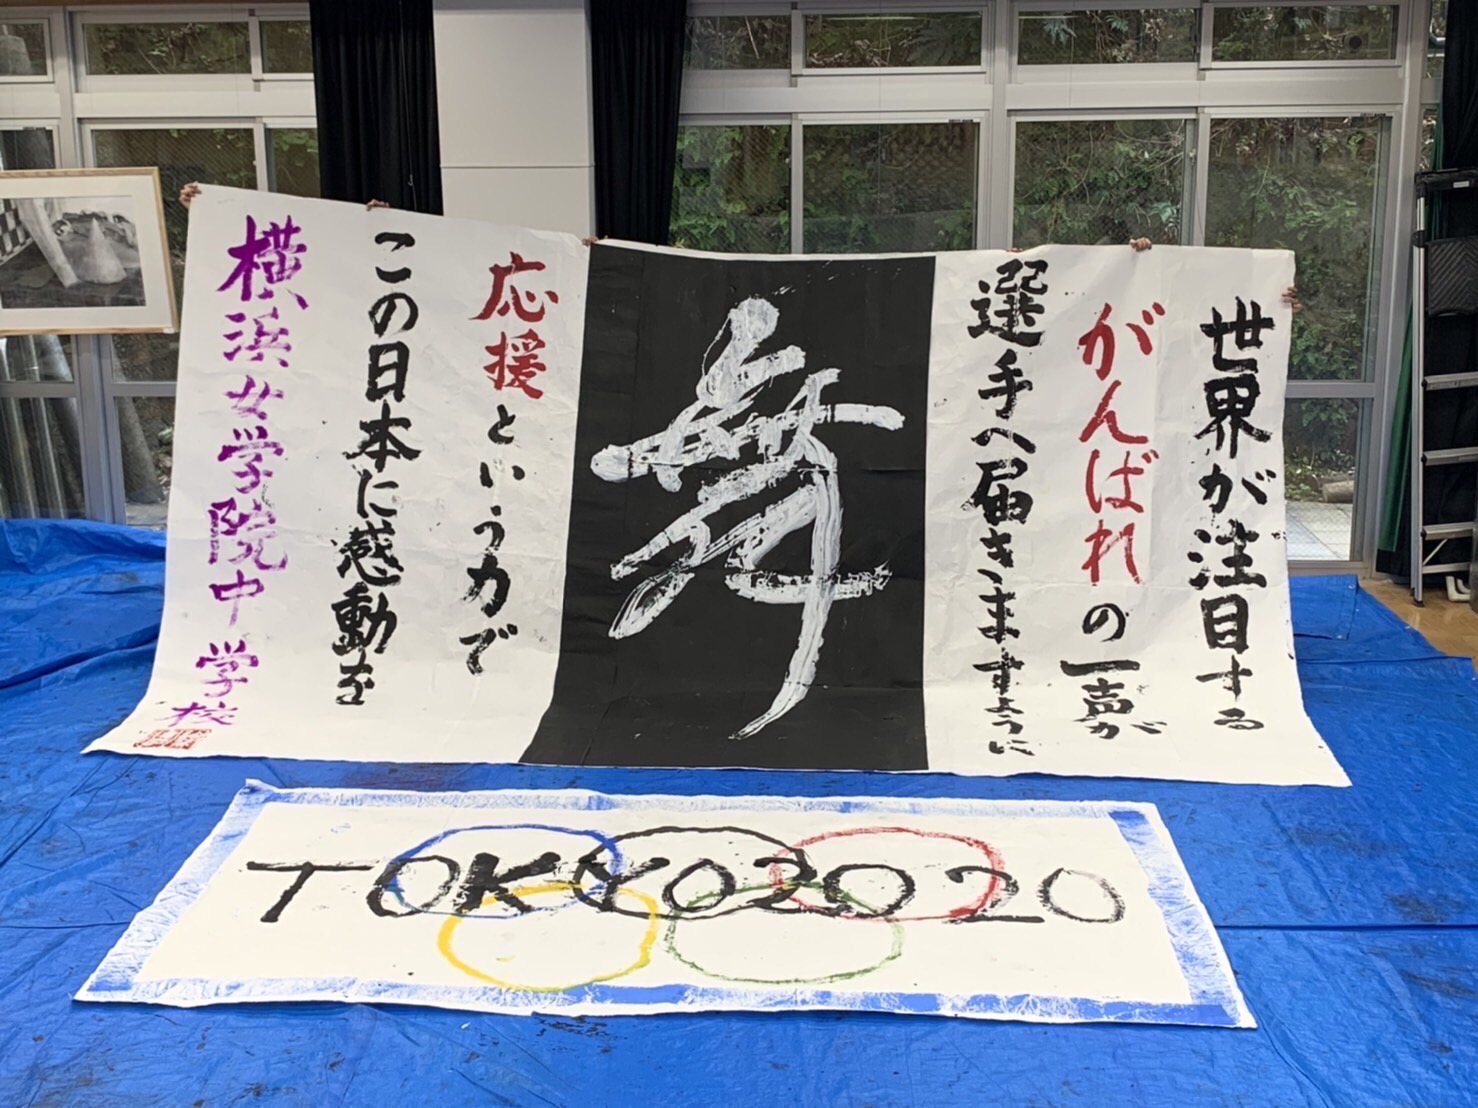 世界が注目する
がんばれの一声が
選手へ届きますように
舞
応援という力で
この日本に感動を
横浜女学院中学校
TOKYO2020